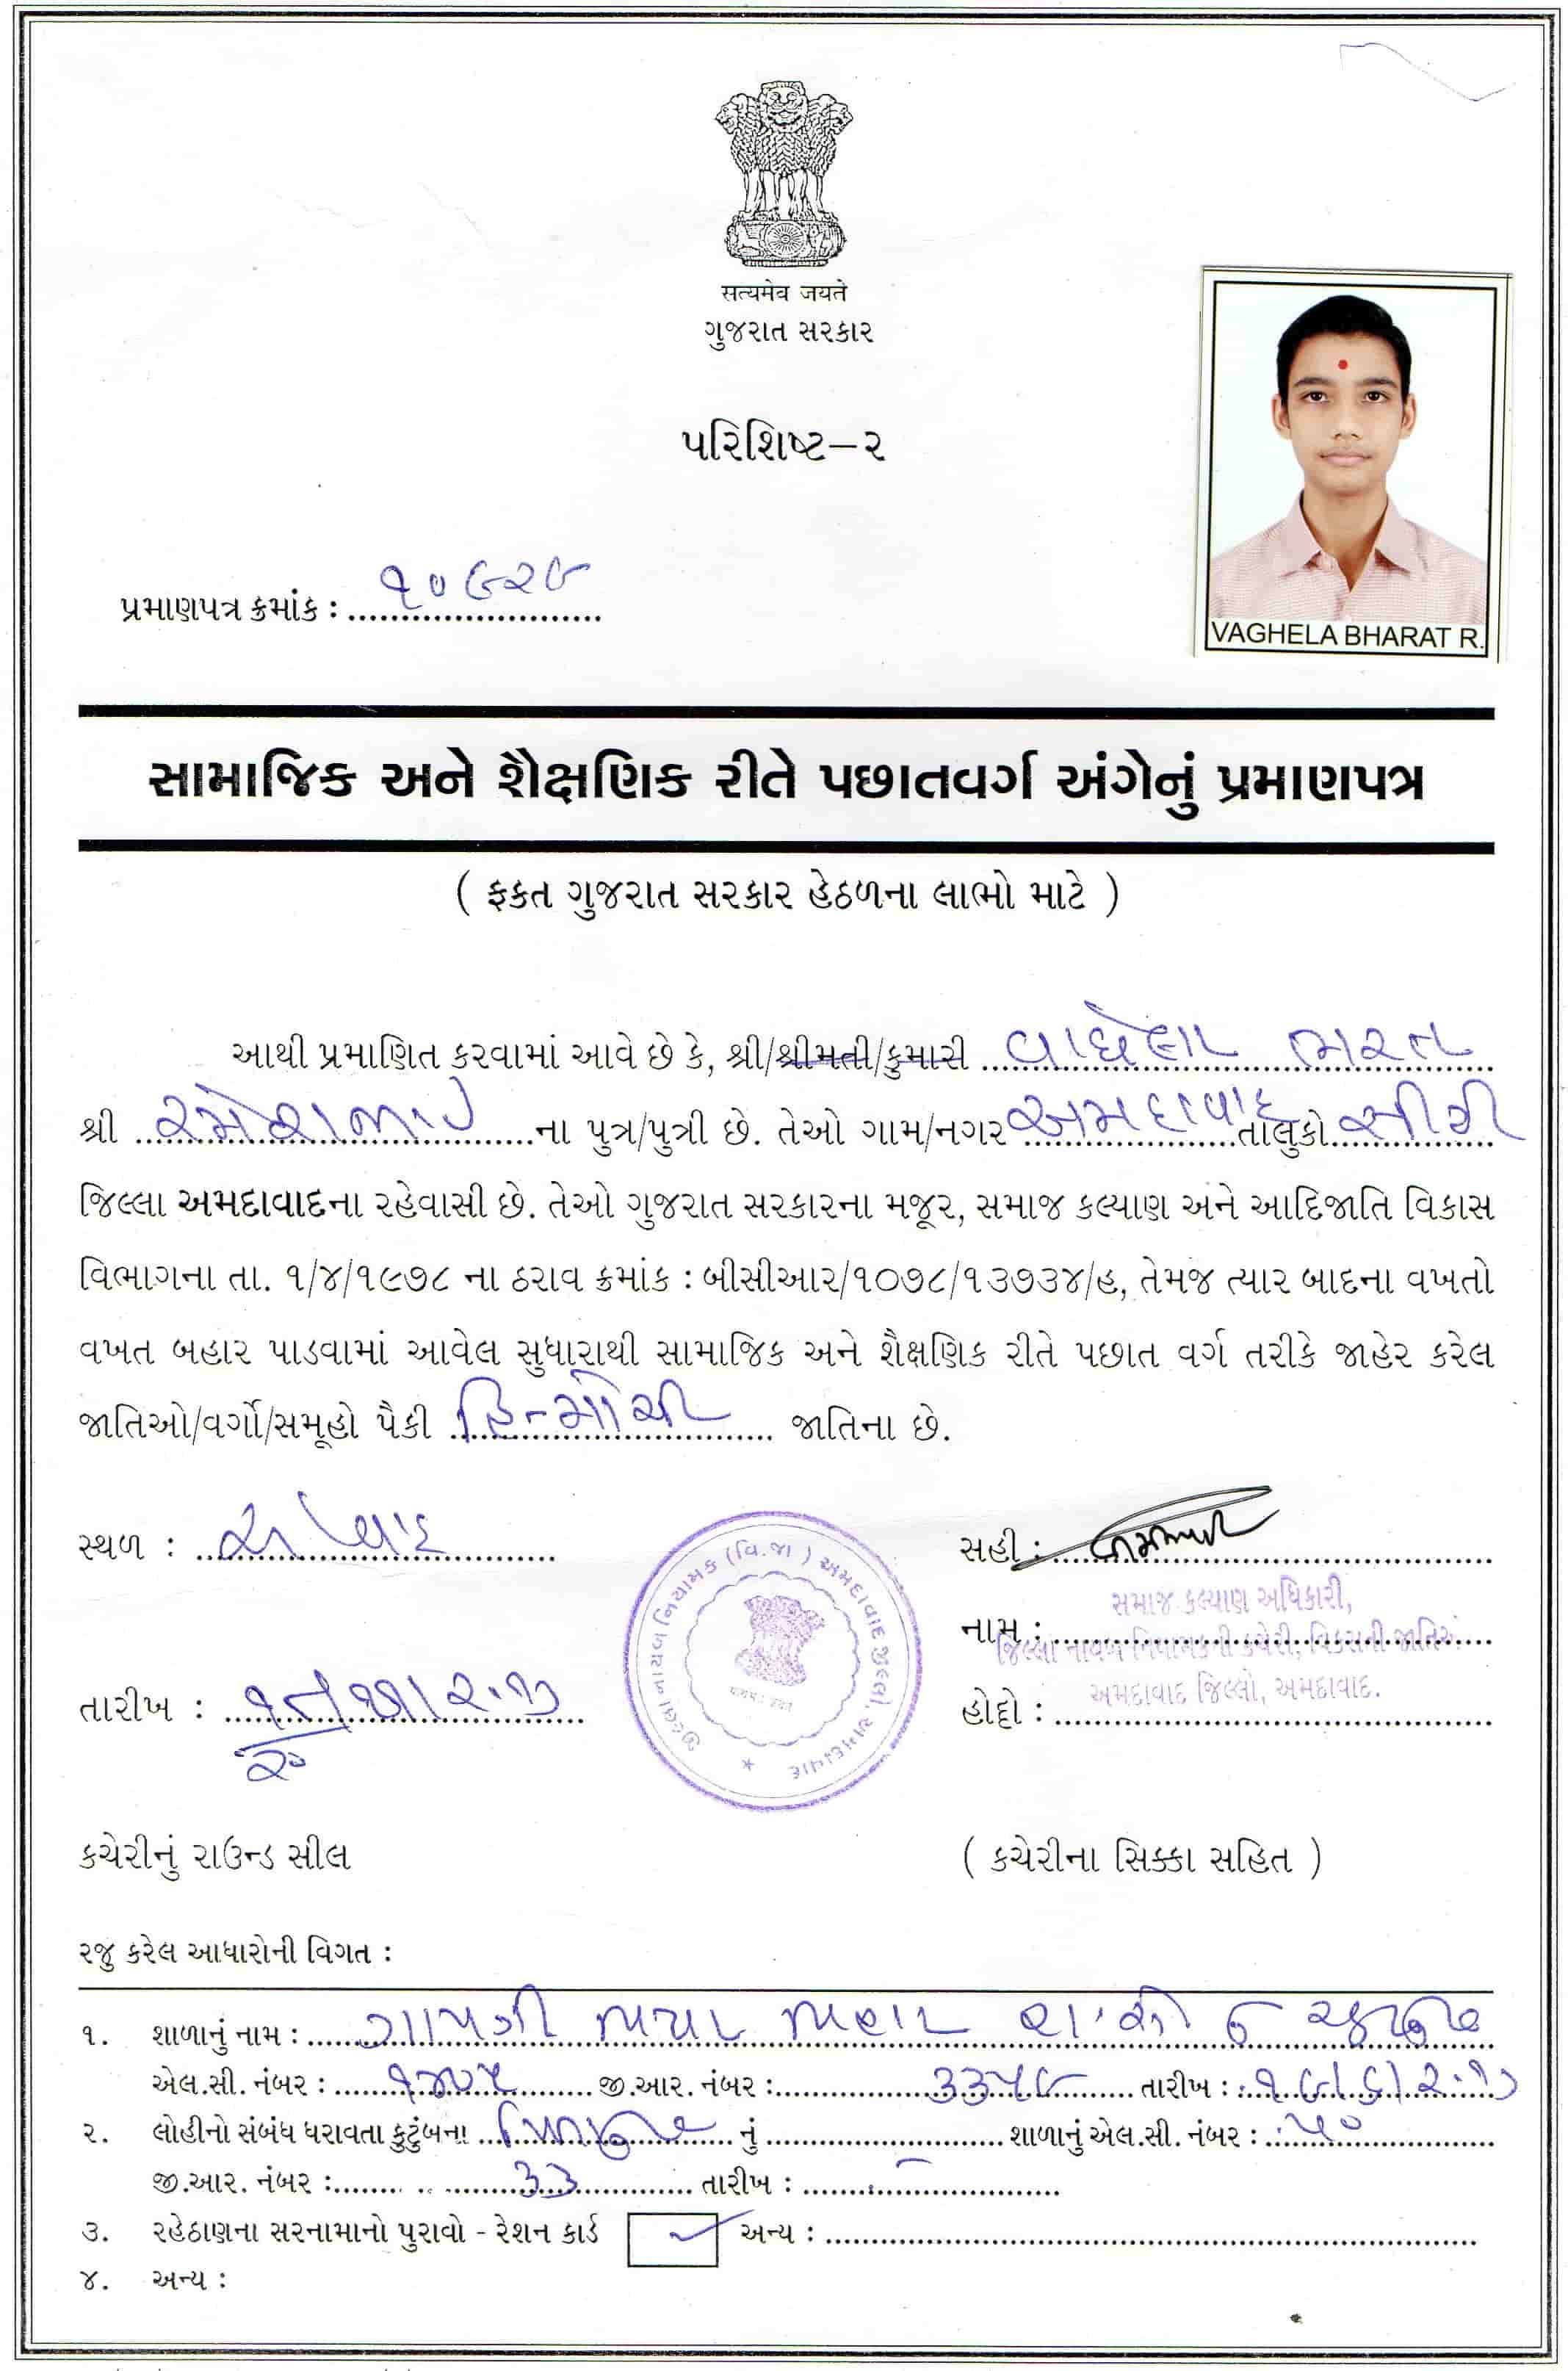 सत्यमेव जयते
ગુજરાત સરકાર
પરિશિષ્ટ–૨
VAGHELA BHARAT R.
પ્રમાણપત્ર ક્રમાંક : ૧૦૯૨૯
સામાજિક અને શૈક્ષણિક રીતે પછાતવર્ગ અંગેનું પ્રમાણપત્ર
( ફકત ગુજરાત સરકાર હેઠળના લાભો માટે )
આથી પ્રમાણિત કરવામાં આવે છે કે, શ્રી/શ્રીમતી/કુમારી વાઘેલા ભરત
શ્રી રમેશભાઇ ના પુત્ર/પુત્રી છે. તેઓ ગામ/નગર અમદાવાદ તાલુકો સીટી
જિલ્લા અમદાવાદના રહેવાસી છે. તેઓ ગુજરાત સરકારના મજૂર, સમાજ કલ્યાણ અને આદિજાતિ વિકાસ
વિભાગના તા. ૧/૪/૧૯૭૮ ના ઠરાવ ક્રમાંક : બીસીઆર/૧૦૭૮/૧૩૭૩૪/હ, તેમજ ત્યાર બાદના વખતો
વખત બહાર પાડવામાં આવેલ સુધારાથી સામાજિક અને શૈક્ષણિક રીતે પછાત વર્ગ તરીકે જાહેર કરેલ
જાતિઓ/વર્ગો/સમૂહો પૈકી હિન્મોચી જાતિના છે.
સ્થળ :
સહી :
સમાજ કલ્યાણ અધિકારી,
નામ :
જિલ્લા નાયબ નિયામકની કચેરી, વિકસતી જાતિ
તારીખ :
અમદાવાદ જિલ્લો, અમદાવાદ.
હોદ્દો :
જીલ્લા નાયબ નિયામક (વિ.જા) અમદાવાદ જીલ્લો, અમદાવાદ
કચેરીનું રાઉન્ડ સીલ
( કચેરીના સિક્કા સહિત )
રજુ કરેલ આધારોની વિગત :
૧. શાળાનું નામ :
એલ.સી. નંબર : ૧૪૦૫ જી.આર. નંબર : ૩૩૫૯ તારીખ :
૨. લોહીનો સંબંધ ધરાવતા કુટુંબના નું શાળાનું એલ.સી. નંબર : ૫૦
જી.આર. નંબર : ૩૩ તારીખ : –
૩. રહેઠાણના સરનામાનો પુરાવો - રેશન કાર્ડ ✓ અન્ય :
૪. અન્ય :